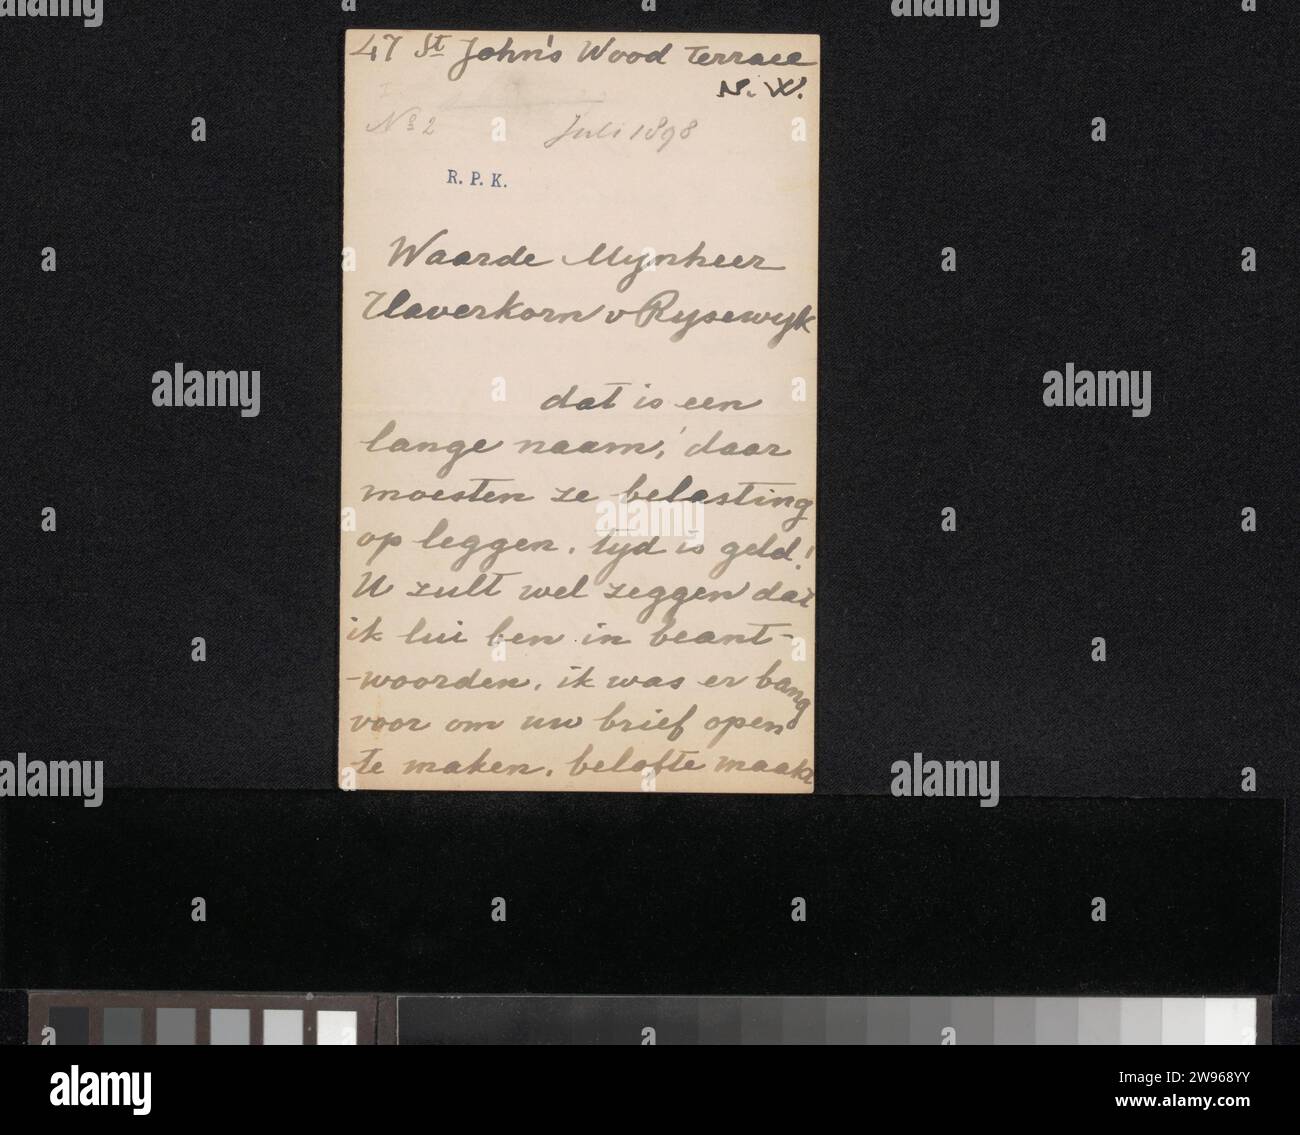 47 St John's Wood Terrace
N. W.
No 2 Juli 1898
R. P. K.
Waarde Mynheer
Haverkorn v Rysewyk
dat is een
lange naam,! daar
moesten ze belasting
op leggen. tyd is geld!
U zult wel zeggen dat
ik lui ben in beant-
-woorden. ik was er bang
voor om uw brief open
te maken. belofte maakt
alamy
Image ID: 2W968YY
www.alamy.com